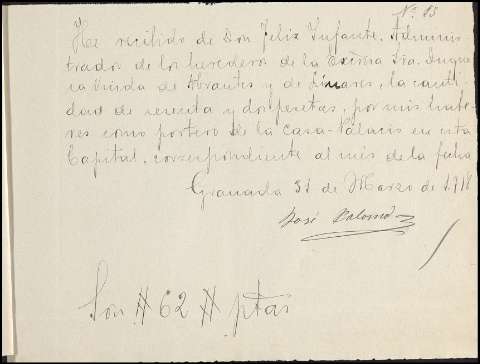 Nº 13
He recibido de Don Felix Infante, Adminis-
trador de los herederos de la Exсma Sra. Duque-
sa viuda de Abrantes y de Linares, la canti-
dad de sesenta y dos pesetas, por mis habe-
res como portero de la Casa-Palacio en esta
Capital, correspondiente al mes de la fecha
Granada 31 de Marzo de 1918
José Palomo
Son # 62 # ptas